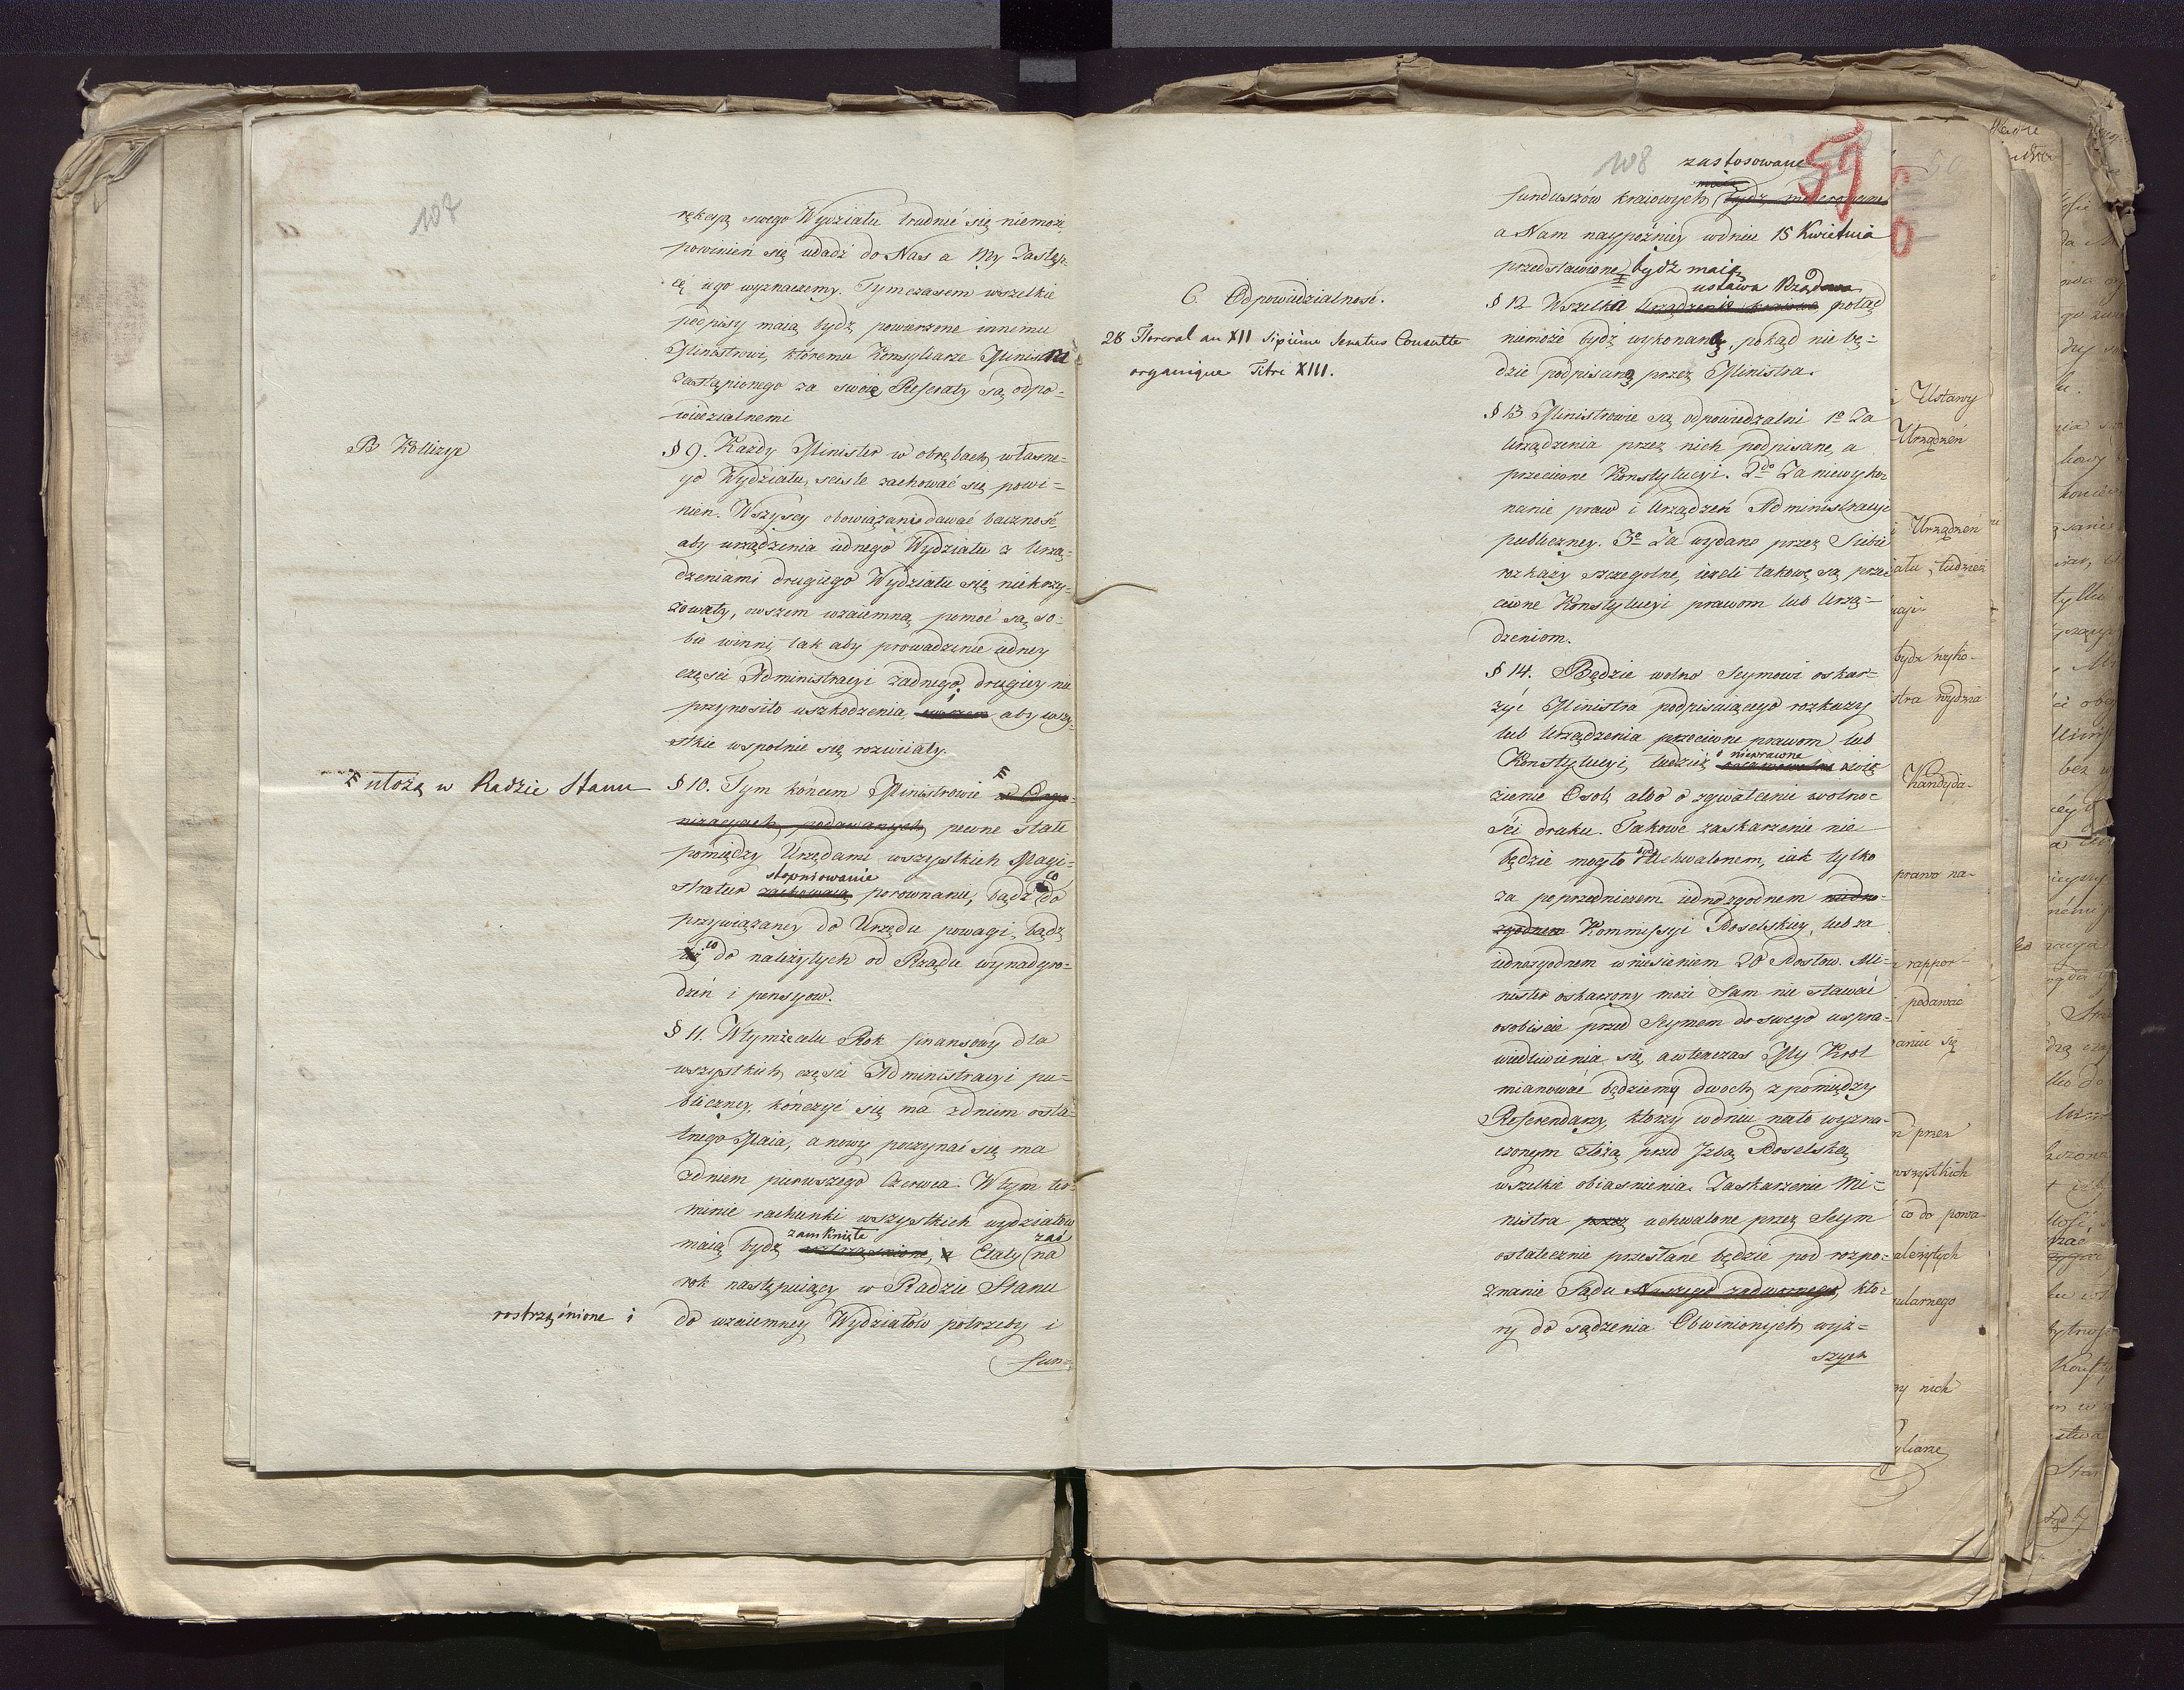 107
rękoją swego Wydziału trudnić się niemoże
powinien się udadź do Nas a My Zastęp-
cę iego wyznaczemy. Tymczasem wszelkie
podpisy maią bydź powierzone innemu
Ministrowi, któremu Konsyliarze Ministra
zastąpionego za swoie Referaty są odpo-
wiedzialnemi
B Kollizye
§ 9. Każdy Minister w obrębach własne-
go Wydziału, scisle zachować się powi-
nien. Wszyscy obowiązani dawać baczność
aby urządzenia iednego Wydziału z Urzą-
dzeniami drugiego Wydziału się niekrzy-
żowały, owszem wzaiemną pomoc są so-
bie winni, tak aby prowadzenie iedney
częsci Administracyi żadnego drugiey nie
przynosiło uszkodzenia, i owszem aby wszy-
stkie wspolnie się rozwiiały.
ułożą w Radzie Stanu
§ 10. Tym końcem Ministrowie w Orga-
nizacyach podawanych, pewne stałe
pomiędzy Urzędami wszystkich Magi-
stopniowanie co
stratur zachowaią porownanie, bądź do
przywiązaney do Urzędu powagi, bądź
co do należytych od Rządu wynadgro-
dzeń i pensyow.
§ 11. Wtymżecelu Rok finansowy dla
wszystkich częsci Administracyi pu-
bliczney, kończyć się ma zdniem osta-
tnego Maia, a nowy poczynać się ma
zdniem pierwszego Czerwca. W tym ter-
minie rachunki wszystkich wydziałów
zamknięte zaś
maią bydź roztrząśnione, a Etaty na
rok następuiący w Radzie Stanu
rostrząśnione i
do wzaiemney Wydziałów potrzeby i
fun-
108
59
zastosowane
maią
funduszów kraiowych bydź miarkowane
a Nam naypoźniey wdniu 15 Kwietnia
przedstawione bydź maią
C. Odpowiedzialność.
28 Floreal an XII Sixième Senatus Consulte
organique Titre XIII.
ustawa Rządowa
§ 12 Wszelka Urządzenie kraiowe potąd
niemoże bydź wykonaną, pokąd nie bę-
dzie podpisaną przez Ministra.
§ 13 Ministrowie są odpowiedzalni 1º Za
Urządzenia przez nich podpisane, a
przeciwne Konstytucyi. 2do Za niewyko-
nanie praw i Urządzeń Administracyi
publiczney. 3º Za wydane przez Siebie
rozkazy szczegolne, ieżeli takowe są prze-
ciwne Konstytucyi prawom lub Urzą-
dzeniom.
§ 14. Będzie wolno Seymowi oskar-
żyć Ministra podpisuiącego rozkazy
lub Urządzenia przeciwne prawom lub
o nieprawne
Konstytucyi, tudzież uwię
zienie Osob, albo o zgwałcenie wolno-
ści druku. Takowe zaskarżenie nie
będzie mogło bydź Uchwalonem, iak tylko
za poprzedniczem iednozgodnem niedno-
zgodnem Kommissyi Poselskiey, lub za
iednozgodnem wniesieniem 20 Posłow. Mi-
nister oskarżony może Sam nie stawać
osobiscie przed Seymem do swego uspra-
wiedliwienia się a wtenczas My Krol
mianować będziemy dwoch z pomiędzy
Referendarzy, ktorzy wdniu nato wyzna-
czonym złożą przed Izbą Poselską
wszelkie obiasnienia. Zaskarżenie Mi-
nistra przez uchwalone przez Seym
ostatecznie przesłane będzie pod rozpo-
znanie Sądu Naszego nadwornego, kto-
ry do sądzenia Obwinionych wyż-
szych
i Ustawy
Urządzeń
i Urządzeń
ału, tudzież
bydź wyko-
stra wydzia
Kandyda-
prawo na-
rappor-
podawać
aniu się
przez
wszystkich
co do powa-
ależytych
ularnego
nich
yliarze